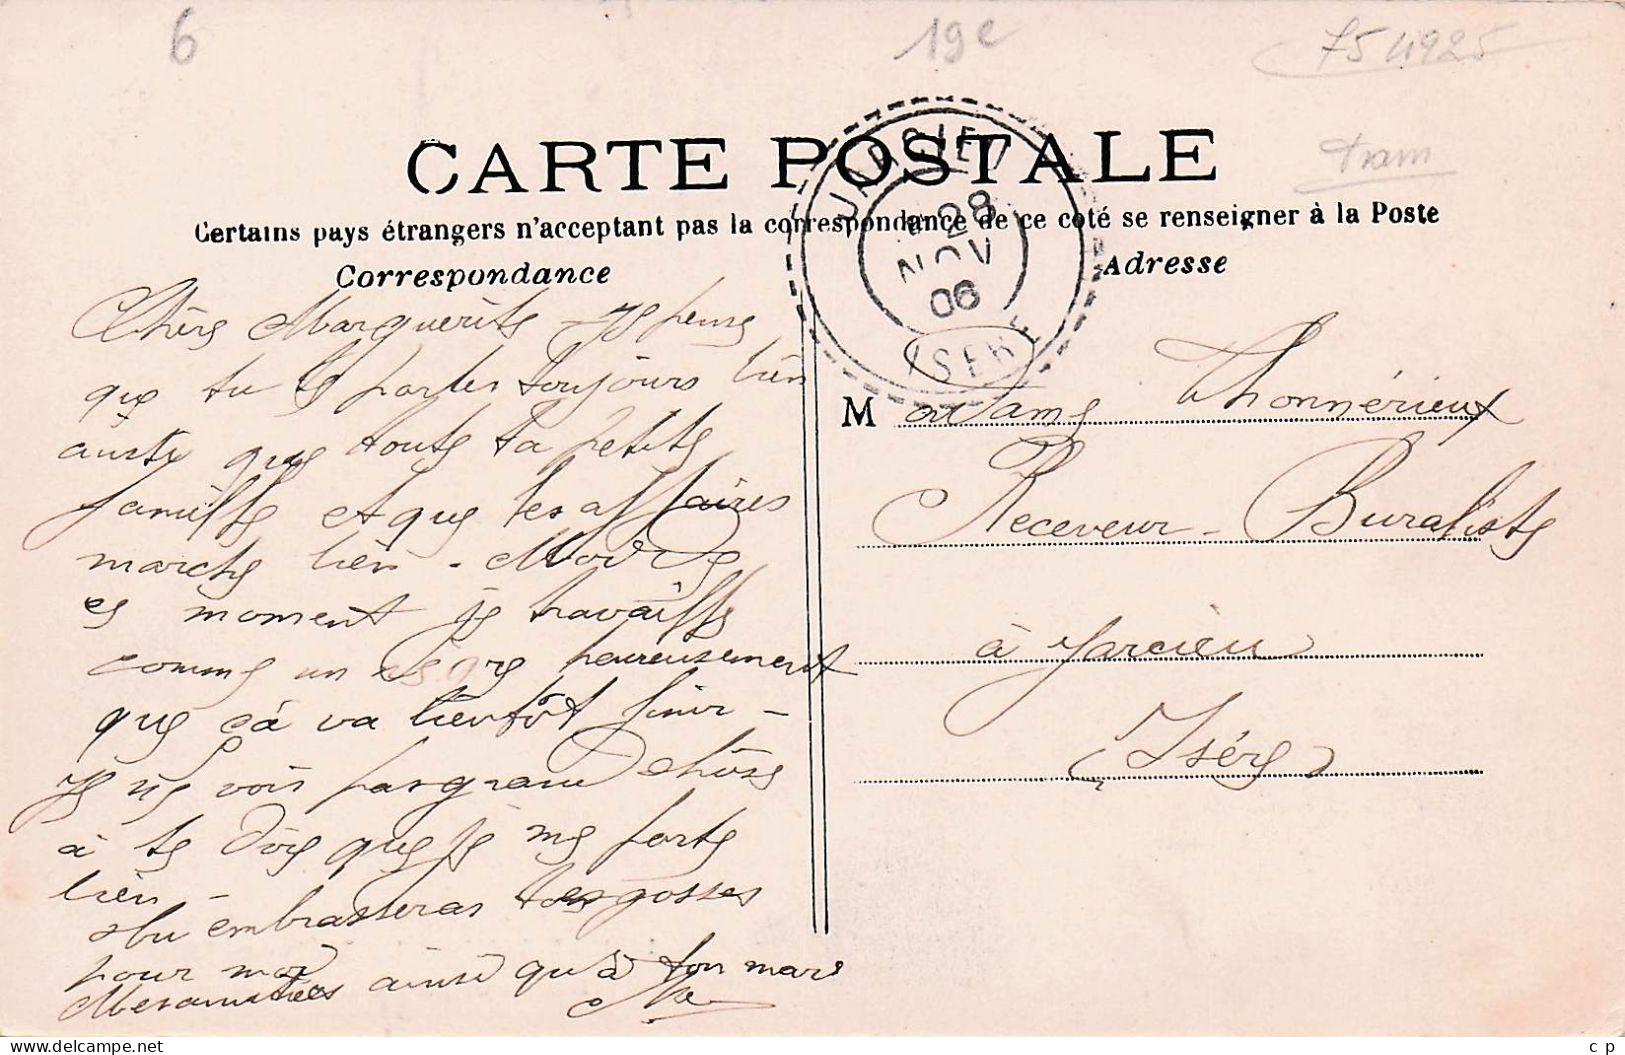 6
19e
754925
tram
CARTE POSTALE
Certains pays étrangers n'acceptent pas la correspondance de ce coté se renseigner à la Poste
Correspondance
Adresse
JARCIEU
28
NOV
06
ISERE
Chère Marguerite – Je pense
que tu te portes toujours bien
ainsi que toute ta petite
famille et que les affaires
marche bien - Moi
ce moment je travaille
comme un nègre heureusement
que çà va bientôt finir –
Je ne vois pas grand chôse
à te dire que je me porte
bien –
tu embrasseras tes gosses
pour moi
Mes amitiées ainsi qu'à ton mari
Madame Thonnérieux
Receveur - Buraliste
à Jarcieu
(Isère)
c p
www.delcampe.net